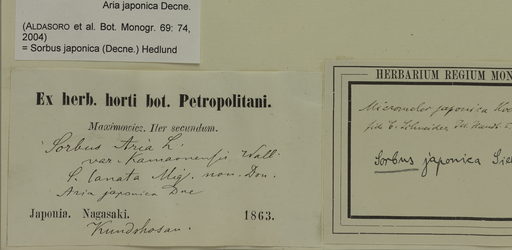 Aria japonica Decne.
(ALDASORO et al. Bot. Monogr. 69: 74,
2004)
= Sorbus japonica (Decne.) Hedlund
Ex herb. horti bot. Petropolitani.
Maximowicz. Iter secundum.
Sorbus Aria L.
var. Kamaonensis Wall.
S. lanata Miq. non. Don.
Aria japonica Dne
Japonia. Nagasaki. 1863.
Kundshosan.
HERBARIUM REGIUM MON
Micromeles japonica
fide C. Schneider Ill. Handb.
Sorbus japonica Sieb